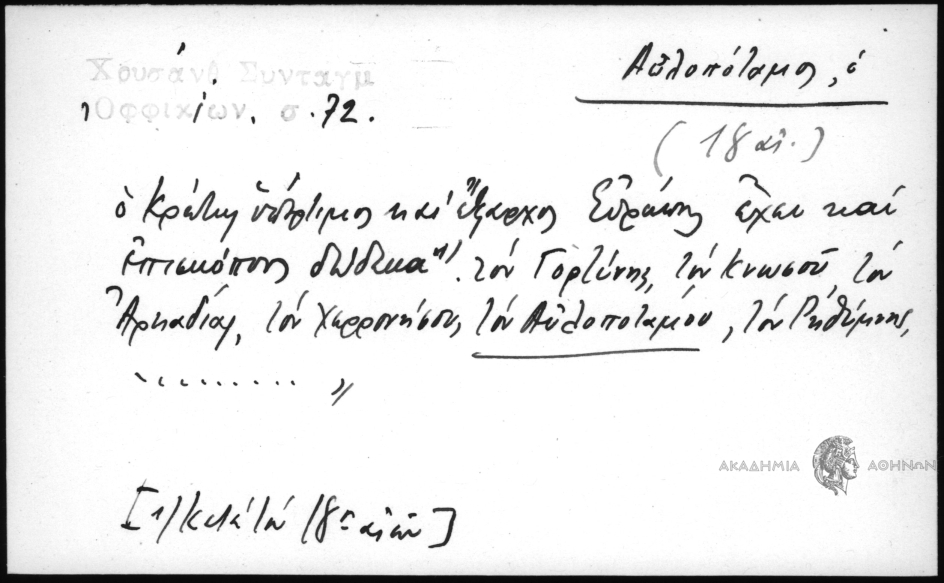 Χρυσάνθ Συνταγμ
Ὀφφικίων. σ. 72.
Αὐλοπόταμος, ὁ
(18 αἰ.)
ὁ Κρήτης ὑπέρτιμος καὶ Ἔξαρχος Εὐρώπης ἔχει καὶ
ἐπισκόπους δώδεκα 1). τὸν Γορτύνης, τὸν Κνωσοῦ τὸν
Ἀρκαδίας, τὸν Χερρονήσου, τὸν Αὐλοποτάμου, τὸν Ρηθύμνης,
.......... "
ΑΚΑΔΗΜΙΑ ΑΘΗΝΩΝ
[1) κατὰ τὸν 18ον αἰῶν]